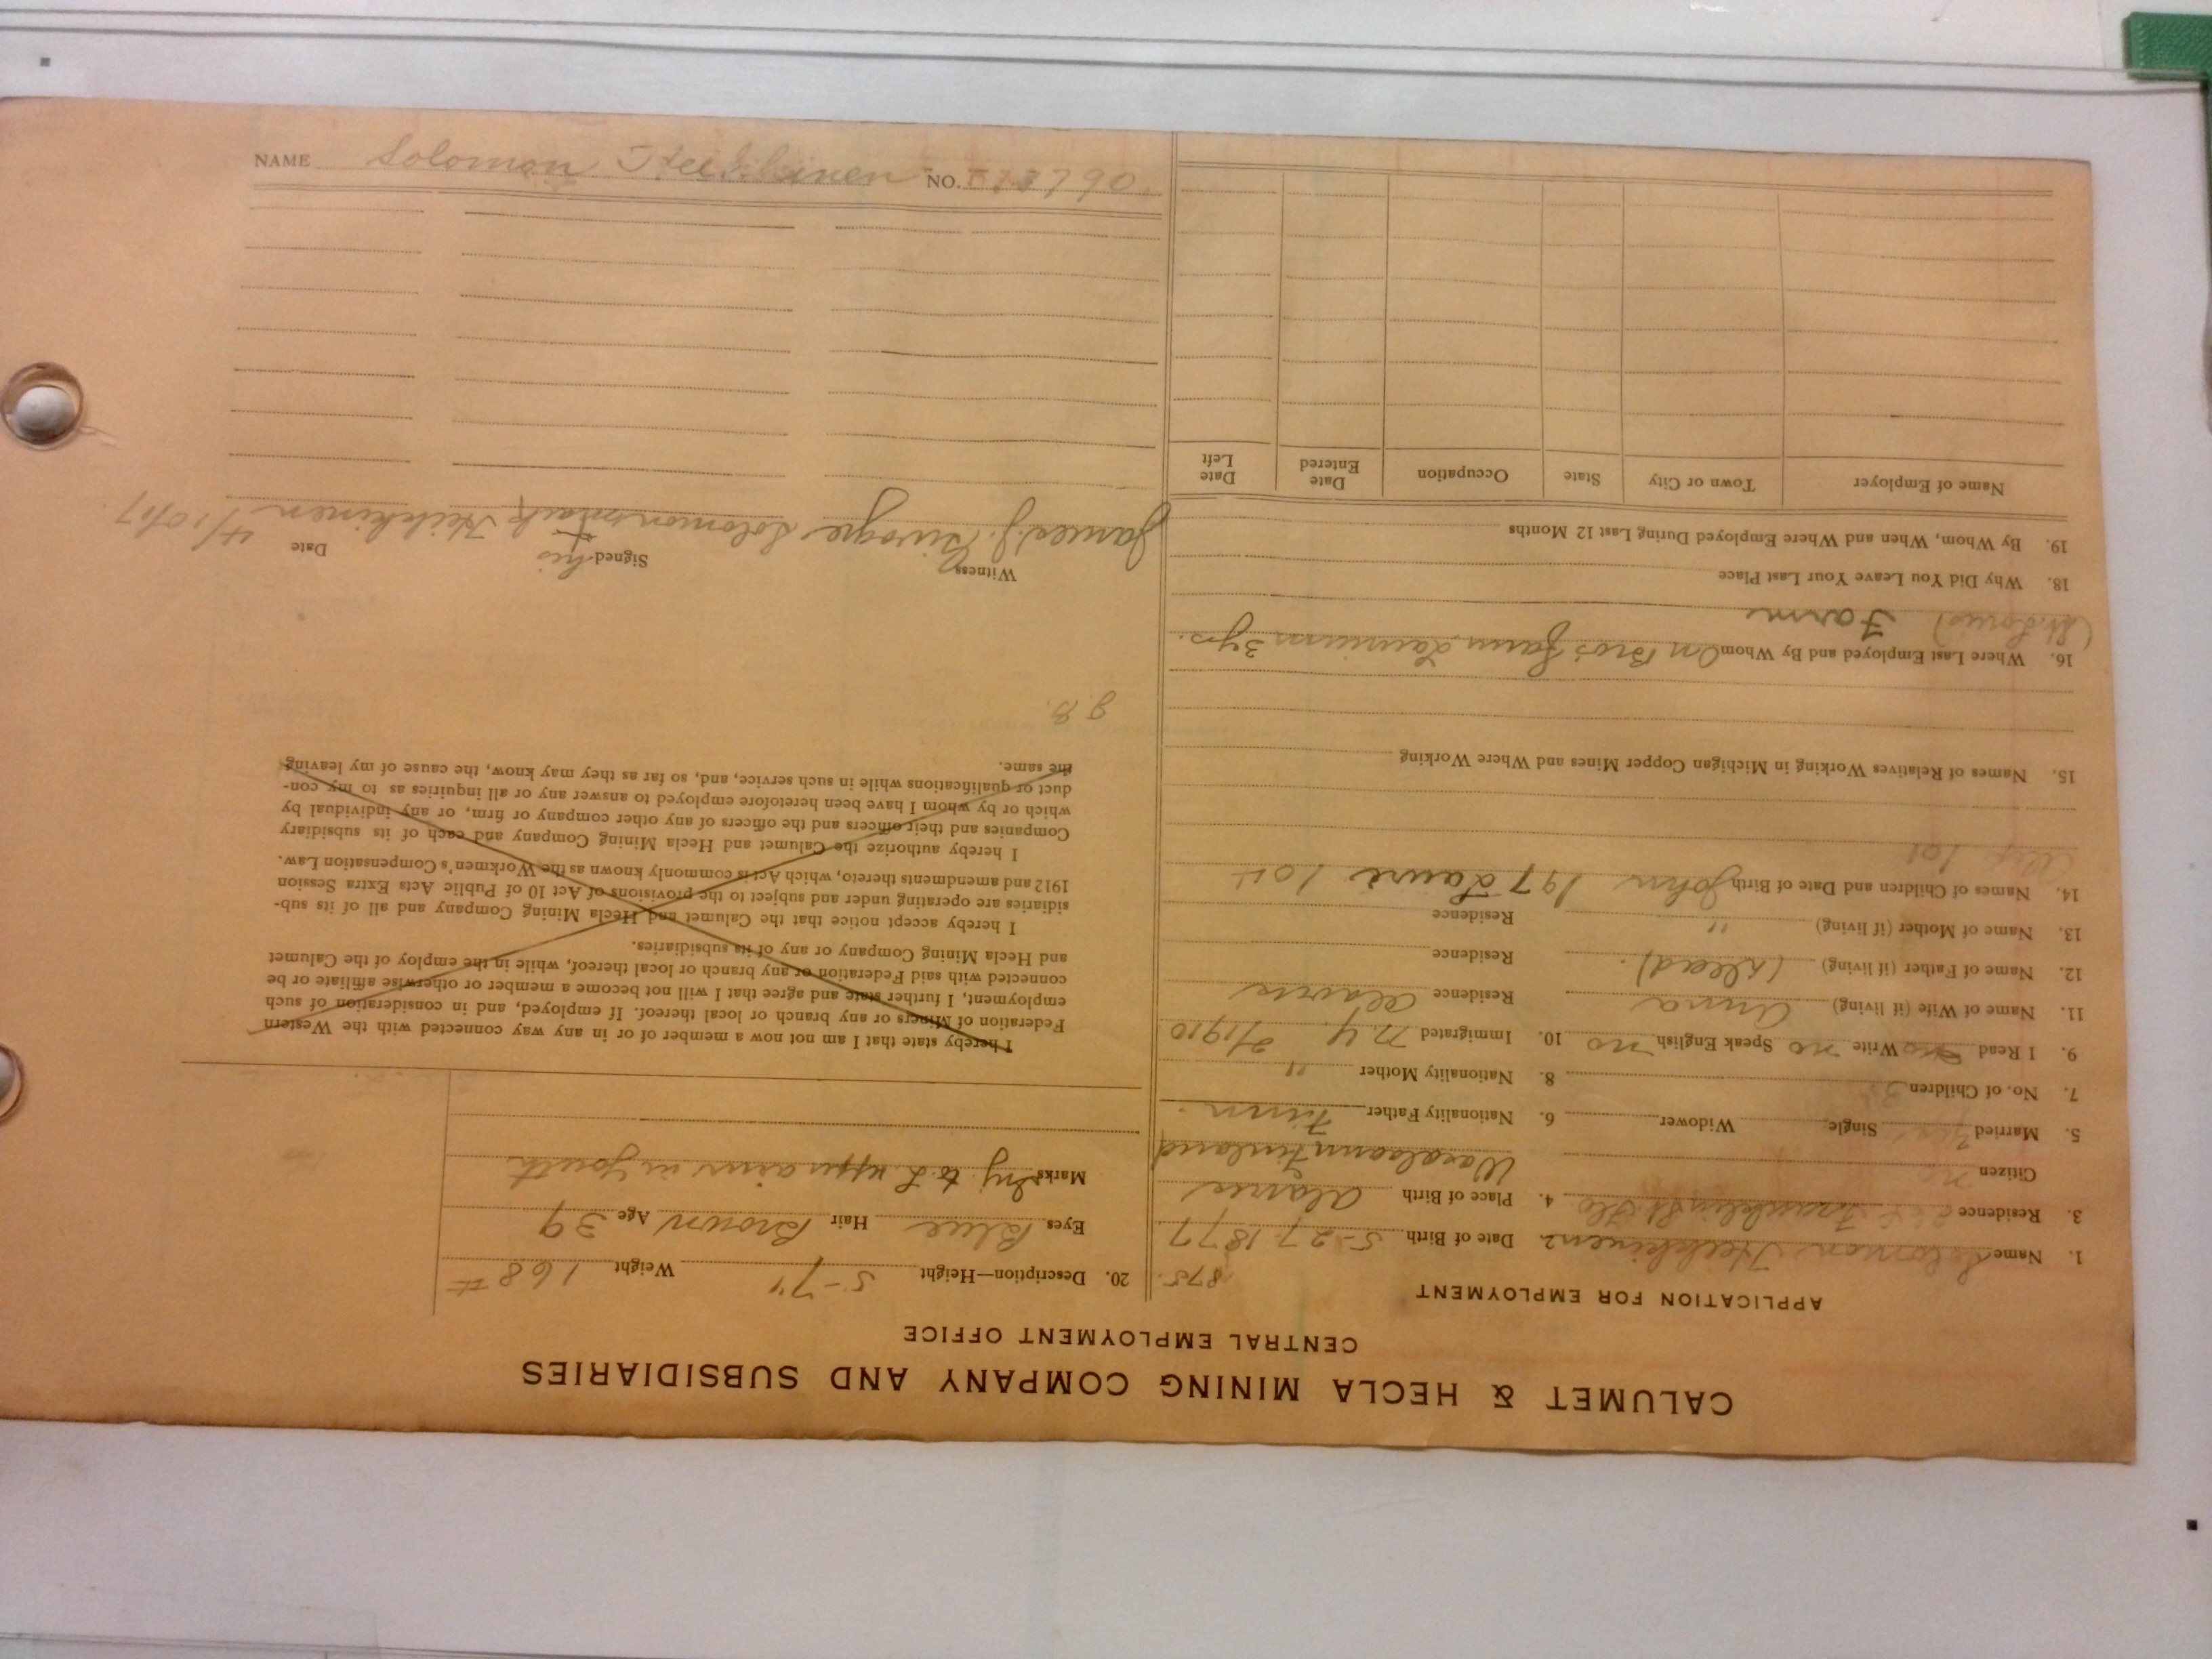 CALUMET & HECLA MINING COMPANY AND SUBSIDIARIES
CENTRAL EMPLOYMENT OFFICE
APPLICATION FOR EMPLOYMENT
875
1. Name Solomon Heikkinen 2. Date of Birth 5-27-1877
3. Residence Franklin St 4. Place of Birth
Citizen no Finland
5. Married Yes Single Widower 6. Nationality Father Finn
7. No. of Children 3 8. Nationality Mother "
9. I Read no Write no Speak English no 10. Immigrated N.Y. 2/1910
11. Name of Wife (if living) Anna Residence
12. Name of Father (if living) (Dead) Residence
13. Name of Mother (if living) " Residence
14. Names of Children and Date of Birth John 197 Lauri 1 04
101
15. Names of Relatives Working in Michigan Copper Mines and Where Working
16. Where Last Employed and By Whom On Bro's farm Laurium 3 yrs.
(St. Louis) Farm
18. Why Did You Leave Your Last Place
19. By Whom, When and Where Employed During Last 12 Months
Name of Employer Town or City State Occupation Date Entered Date Left
20. Description—Height 5-7" Weight 168#
Eyes Blue Hair Brown Age 39
Marks Inj to L upper arm in youth
I hereby state that I am not now a member of or in any way connected with the Western
Federation of Miners or any branch or local thereof. If employed, and in consideration of such
employment, I further state and agree that I will not become a member or otherwise affiliate or be
connected with said Federation or any branch or local thereof, while in the employ of the Calumet
and Hecla Mining Company or any of its subsidiaries.
I hereby accept notice that the Calumet and Hecla Mining Company and all of its sub-
sidiaries are operating under and subject to the provisions of Act 10 of Public Acts Extra Session
1912 and amendments thereto, which Act is commonly known as the Workmen's Compensation Law.
I hereby authorize the Calumet and Hecla Mining Company and each of its subsidiary
Companies and their officers and the officers of any other company or firm, or any individual by
which or by whom I have been heretofore employed to answer any or all inquiries as to my con-
duct or qualifications while in such service, and, so far as they may know, the cause of my leaving
the same.
Witness Signed his Date
James J. Solomon mark Heikkinen 4/10/17
NAME Solomon Heikkinen NO. 13790